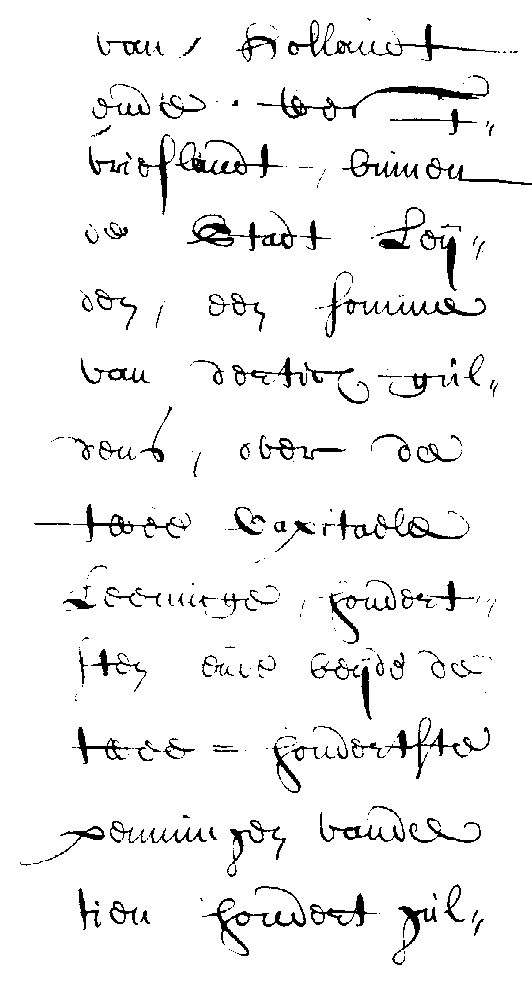 van / Hollandt
ende · wes t„
vrieslandt -, binnen
de Stadt Leÿ„
den, een somme
van dertich gúl„
dens, over de
twee Capitaele
Leeninge, hondert„
sten ende beÿde de
twee = hondertste
penningen vande
tien hondert gúl„